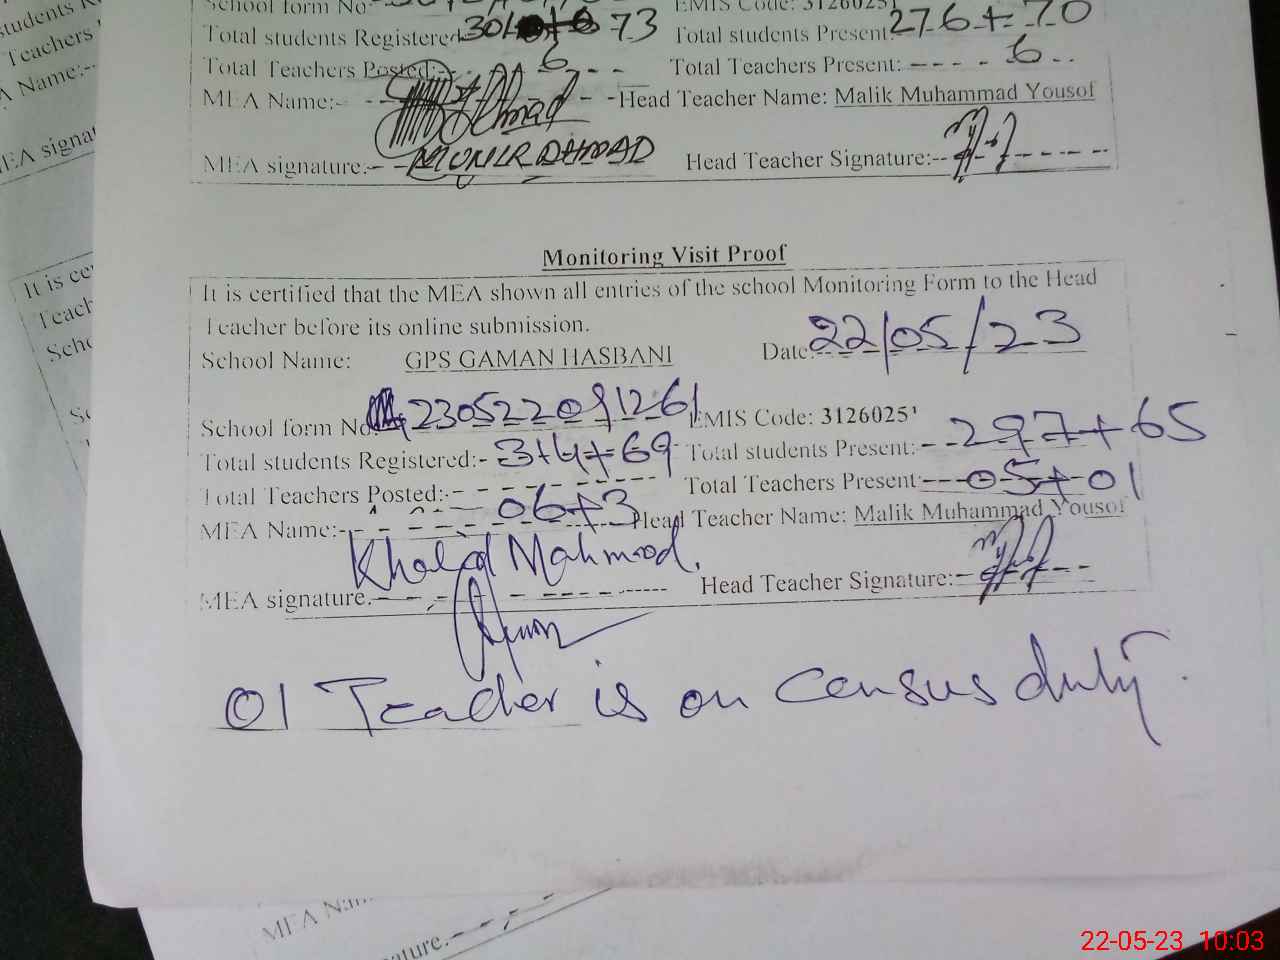 School form No
EMIS Code: 31260251
Total students Registered 73 Total students Present: 276+70
Total Teachers Posted: 6 Total Teachers Present: 6
MEA Name: Ahmad Head Teacher Name: Malik Muhammad Yousof
MEA signature: MUNIR AHMAD Head Teacher Signature:
Monitoring Visit Proof
It is certified that the MEA shown all entries of the school Monitoring Form to the Head
Teacher before its online submission.
School Name: GPS GAMAN HASBANI Date: 22/05/23
School form No: 230522091261 EMIS Code: 31260251
Total students Registered: 314+69 Total students Present: 297+65
Total Teachers Posted: 06+3 Total Teachers Present 05+01
MEA Name: Khalid Mahmood. Head Teacher Name: Malik Muhammad Yousof
MEA signature. Head Teacher Signature:
01 Teacher is on census duty.
students
Teachers
Name:
MEA signat
It is cer
Teach
Scho
MEA Nam
ature.
22-05-23 10:03